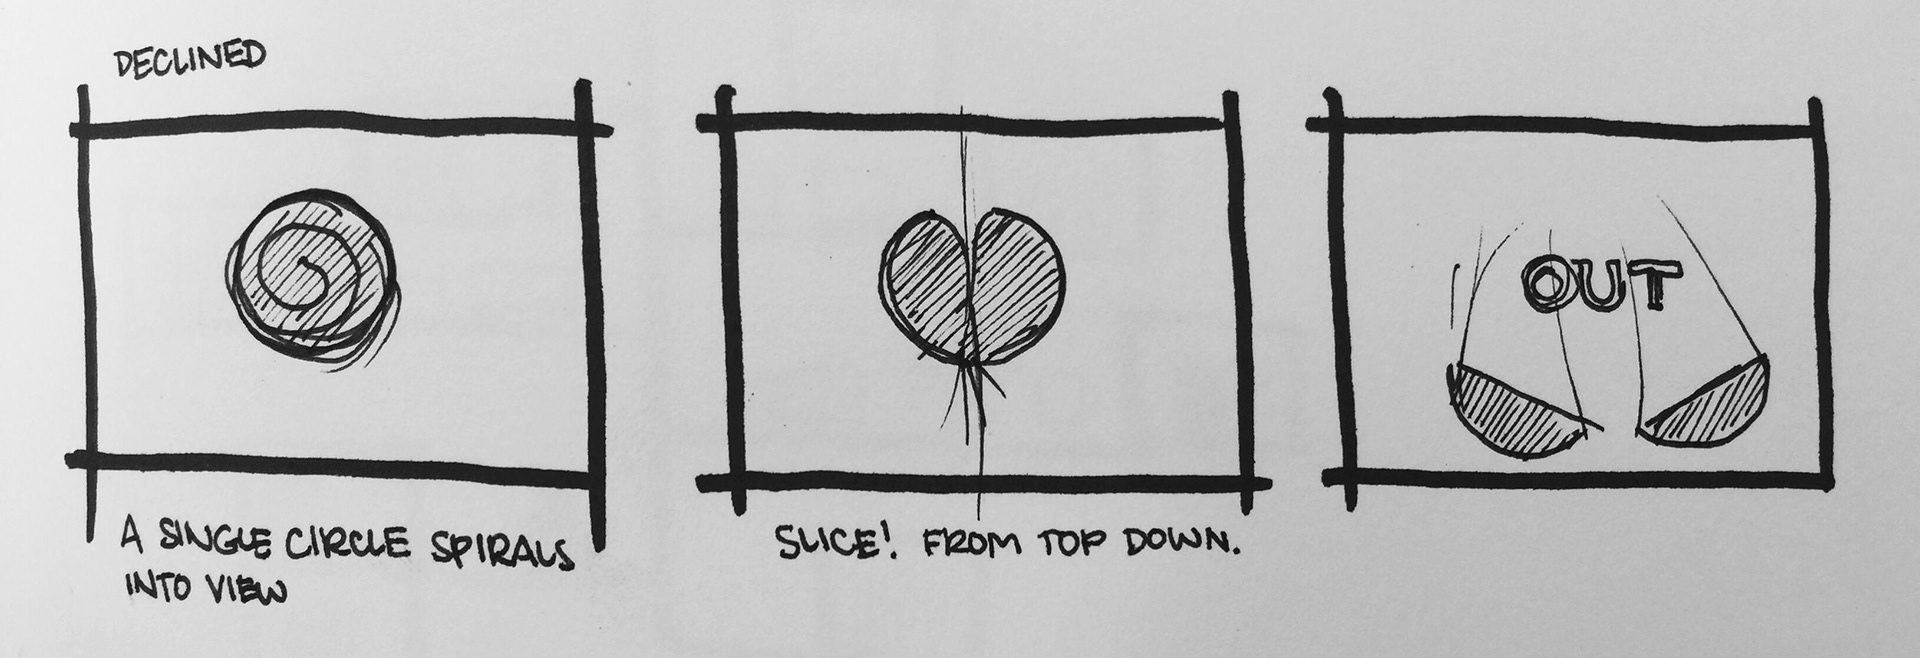 DECLINED
OUT
A SINGLE CIRCLE SPIRALS
INTO VIEW
SLICE! FROM TOP DOWN.